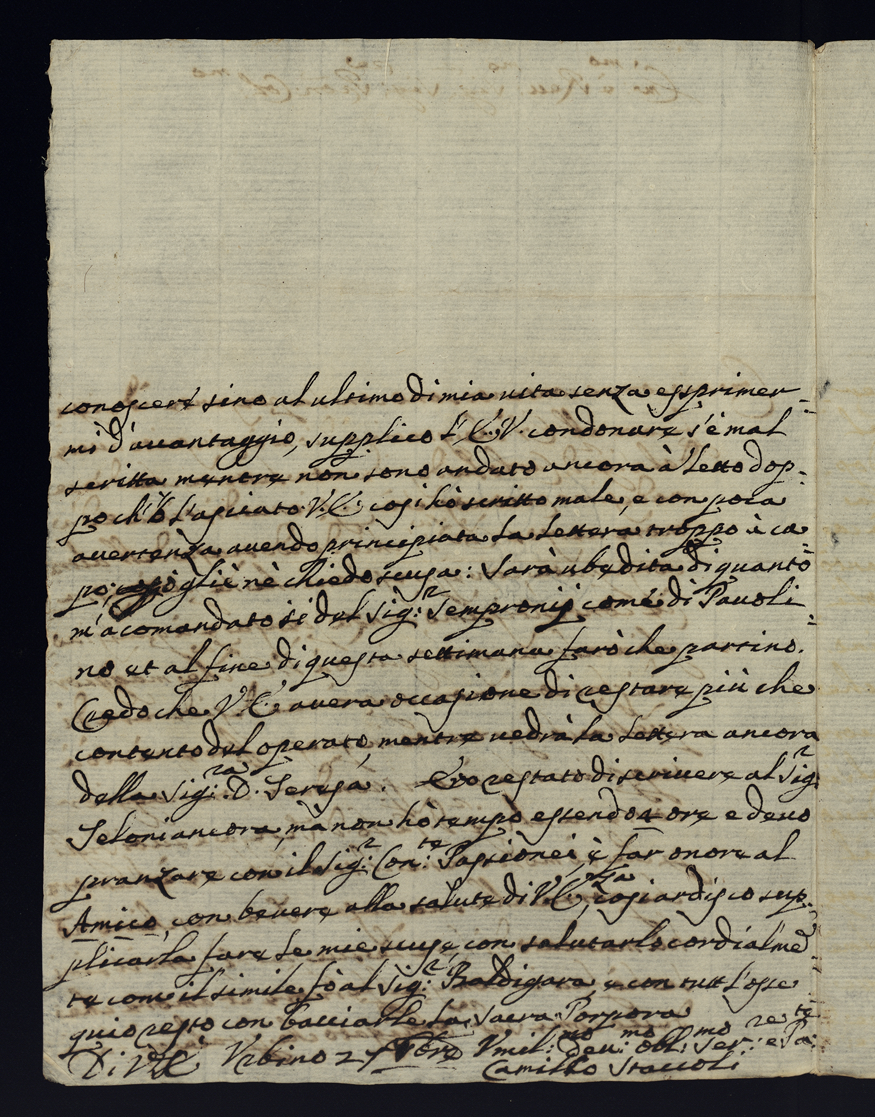 conoscere sino al ultimo di mia uita senza essprimer-
mi d'auantaggio, supplico l'E.V. condonare s'è mal
scritta mentre non sono andato ancora à letto dop-
po ch'ò lasciato V.E. cosi hò scritto male, e con poca
auertenza auendo principiata la lettera troppo à ca
po; gliè nè chiedo scusa: Sarà ubedita di quanto
m'à comandato si del Sig:r Sempronij come di Pauoli
no et al fine di questa settimana farò che partino.
Credo che V.E. auera occasione di restare più che
contento del operato, mentre uedrà la lettera ancora
della Sig:ra D. Teresa. Ero restato di scriuere al Sig:r
Seloni ancora, mà non hò tempo essendo 4 ore e deuo
pranzare con il Sig:r Con:te Passionei, e far onore al
Amico, con beuere alla salute di V.E., cosi ardisco sup-
plicarla fare le mie scuse con salutarlo cordialme
te com il simile fò al Sig:r Baldigara, e con tutt'osse
quio resto con bacciarle la Sacra Porpora
Di V.E. Vrbino 27 Vmil:mo deu:mo obl:mo Ser:re e Pa:
Camillo Staccoli